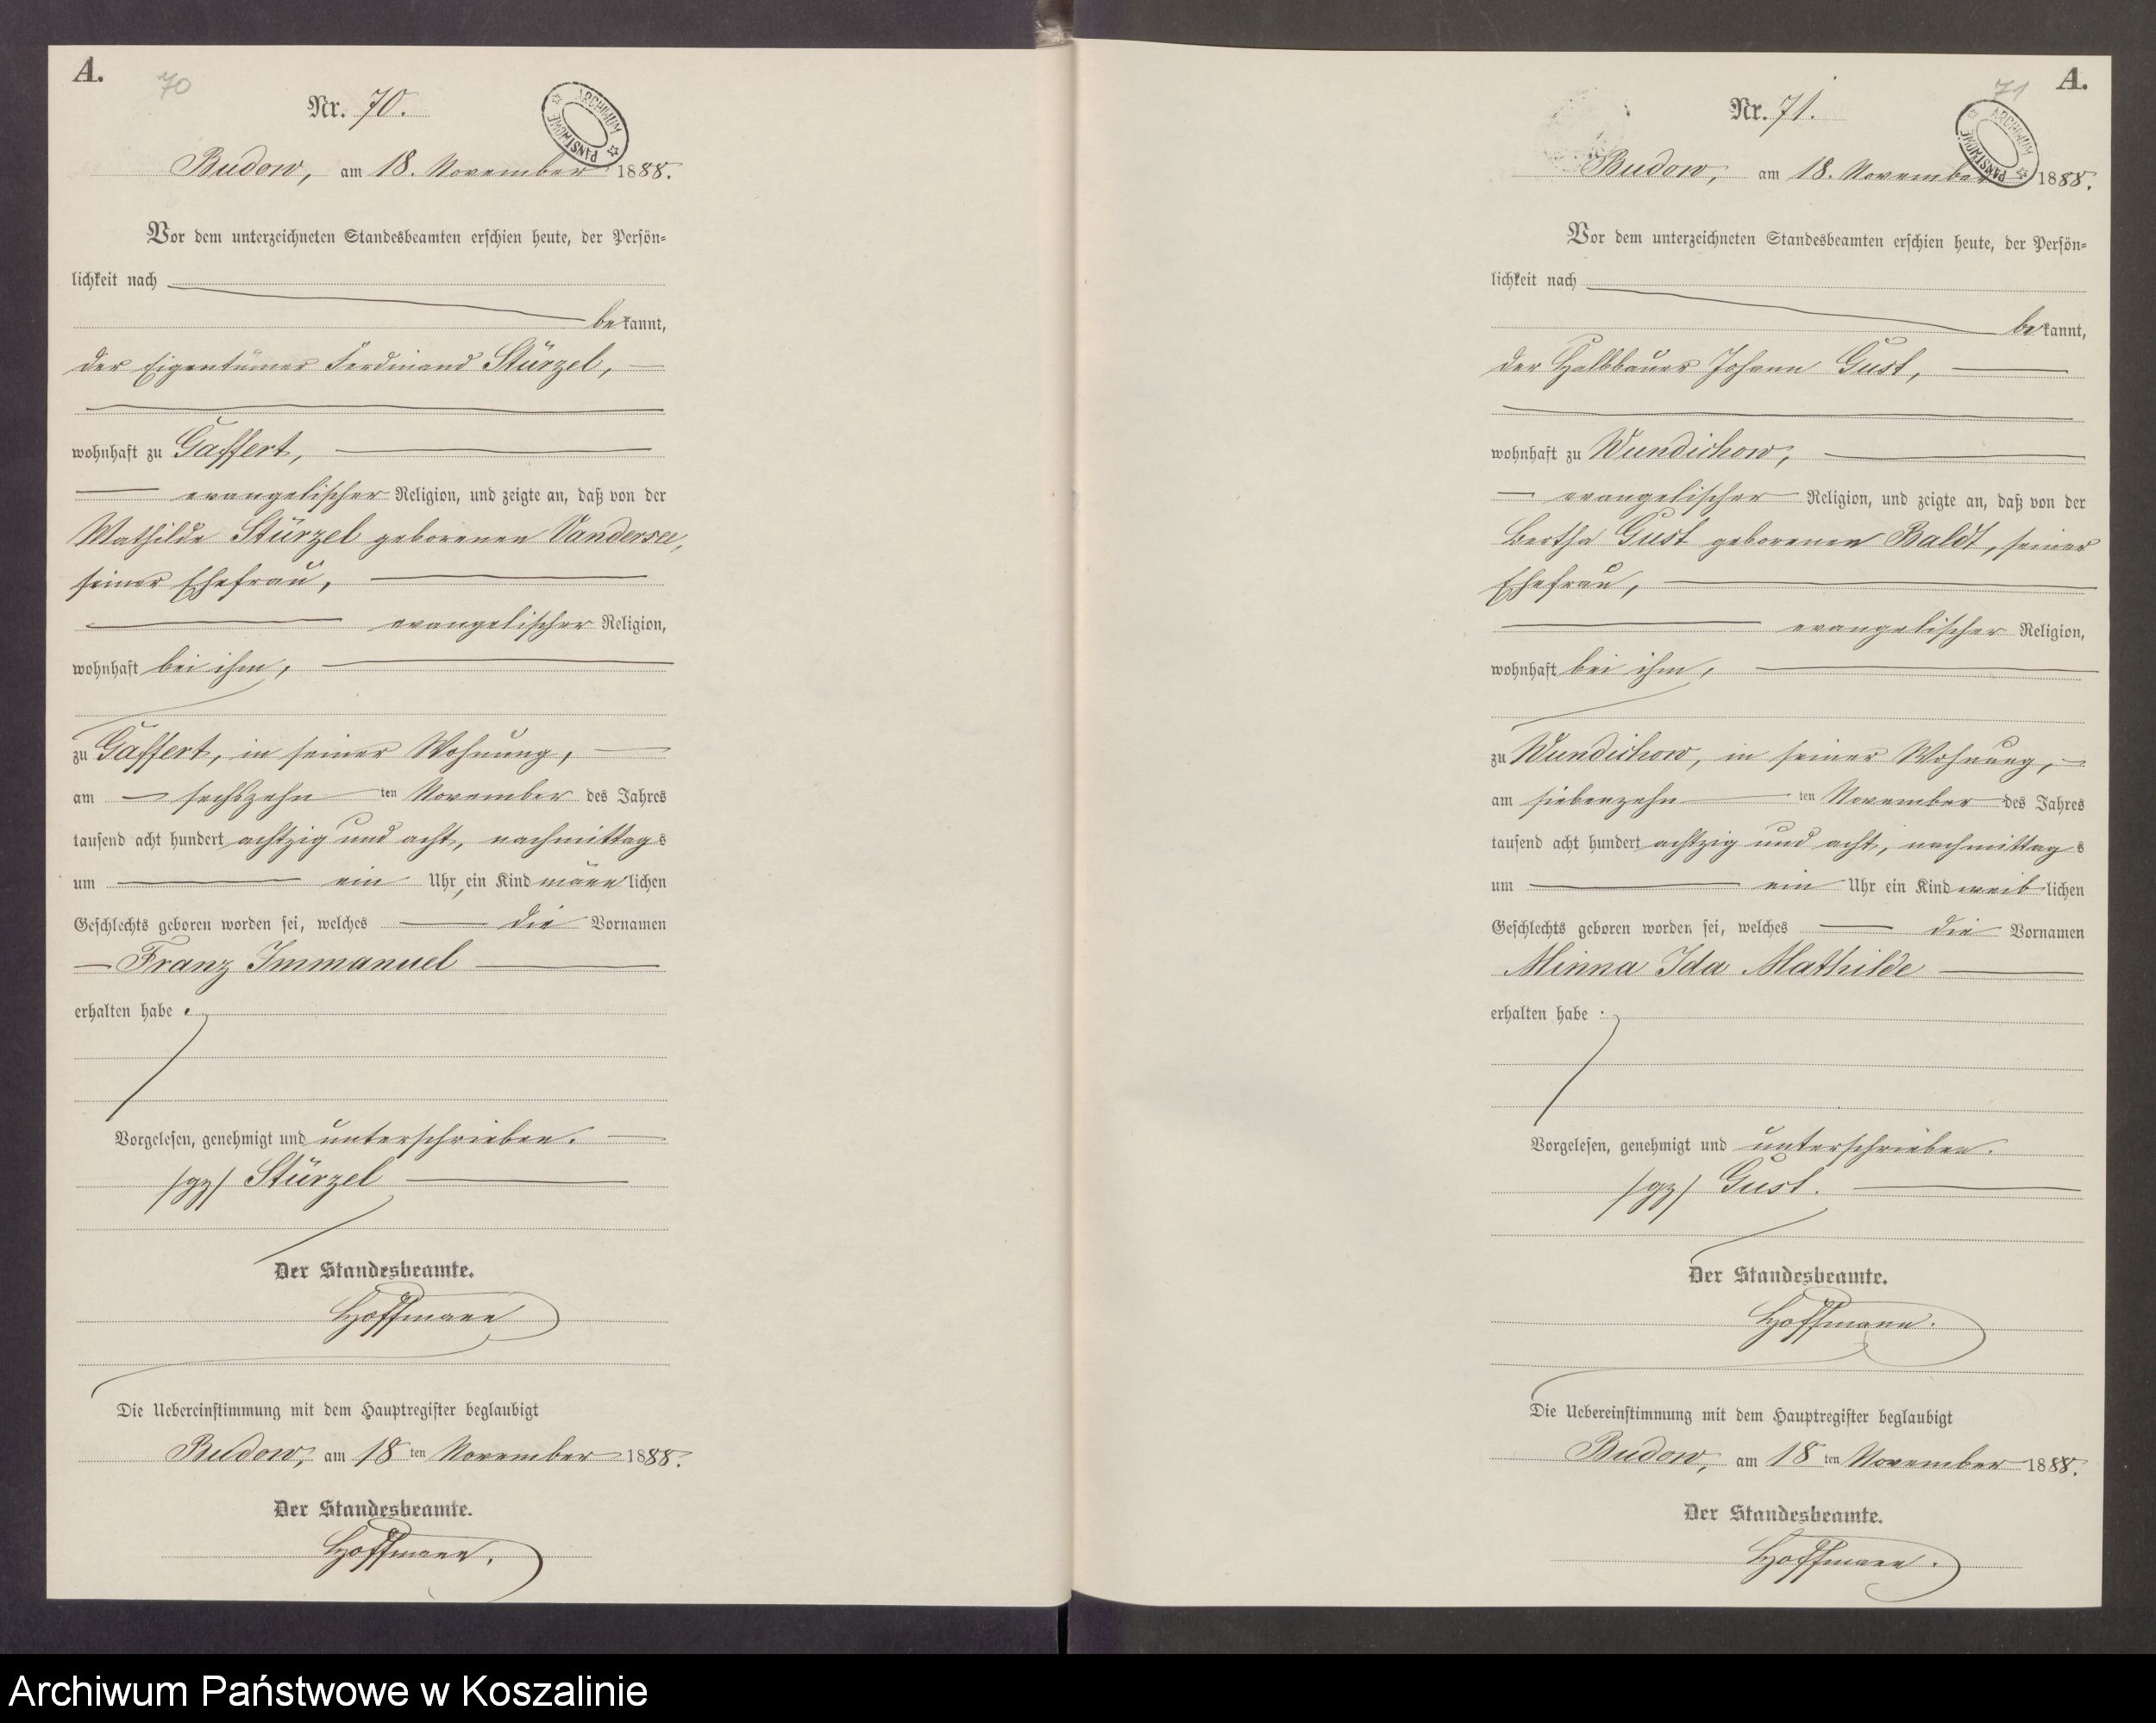 A.
70
Nr. 70.
ARCHIWUM PAŃSTWOWE
Budow, am 18. November 1888.
Vor dem unterzeichneten Standesbeamten erschien heute, der Persön-
lichkeit nach
bekannt,
der Eigentümer Ferdinand Stürzel,
wohnhaft zu Gaffert,
evangelischer Religion, und zeigte an, daß von der
Mathilde Stürzel geborenen Vandersee,
seiner Ehefrau,
evangelischer Religion,
wohnhaft bei ihm,
zu Gaffert, in seiner Wohnung,
am sechszehn ten November des Jahres
tausend acht hundert achtzig und acht, nachmittags
um ein Uhr, ein Kind männlichen
Geschlechts geboren worden sei, welches die Vornamen
Franz Immanuel
erhalten habe.
Vorgelesen, genehmigt und unterschrieben.
/gz/ Stürzel
Der Standesbeamte.
Hoffmann
Die Uebereinstimmung mit dem Hauptregister beglaubigt
Budow, am 18 ten November 1888.
Der Standesbeamte.
Hoffmann.
71
A.
Nr. 71.
ARCHIWUM PAŃSTWOWE
Budow, am 18. November 1888.
Vor dem unterzeichneten Standesbeamten erschien heute, der Persön-
lichkeit nach
bekannt,
der Halbbauer Johann Gust,
wohnhaft zu Wundichow,
evangelischer Religion, und zeigte an, daß von der
Bertha Gust geborenen Baldt, seiner
Ehefrau,
evangelischer Religion,
wohnhaft bei ihm,
zu Wundichow, in seiner Wohnung,
am siebenzehn ten November des Jahres
tausend acht hundert achtzig und acht, nachmittags
um ein Uhr ein Kind weiblichen
Geschlechts geboren worden sei, welches die Vornamen
Minna Ida Mathilde
erhalten habe.
Vorgelesen, genehmigt und unterschrieben.
/gz/ Gust.
Der Standesbeamte.
Hoffmann.
Die Uebereinstimmung mit dem Hauptregister beglaubigt
Budow, am 18 ten November 1888.
Der Standesbeamte.
Hoffmann.
Archiwum Państwowe w Koszalinie